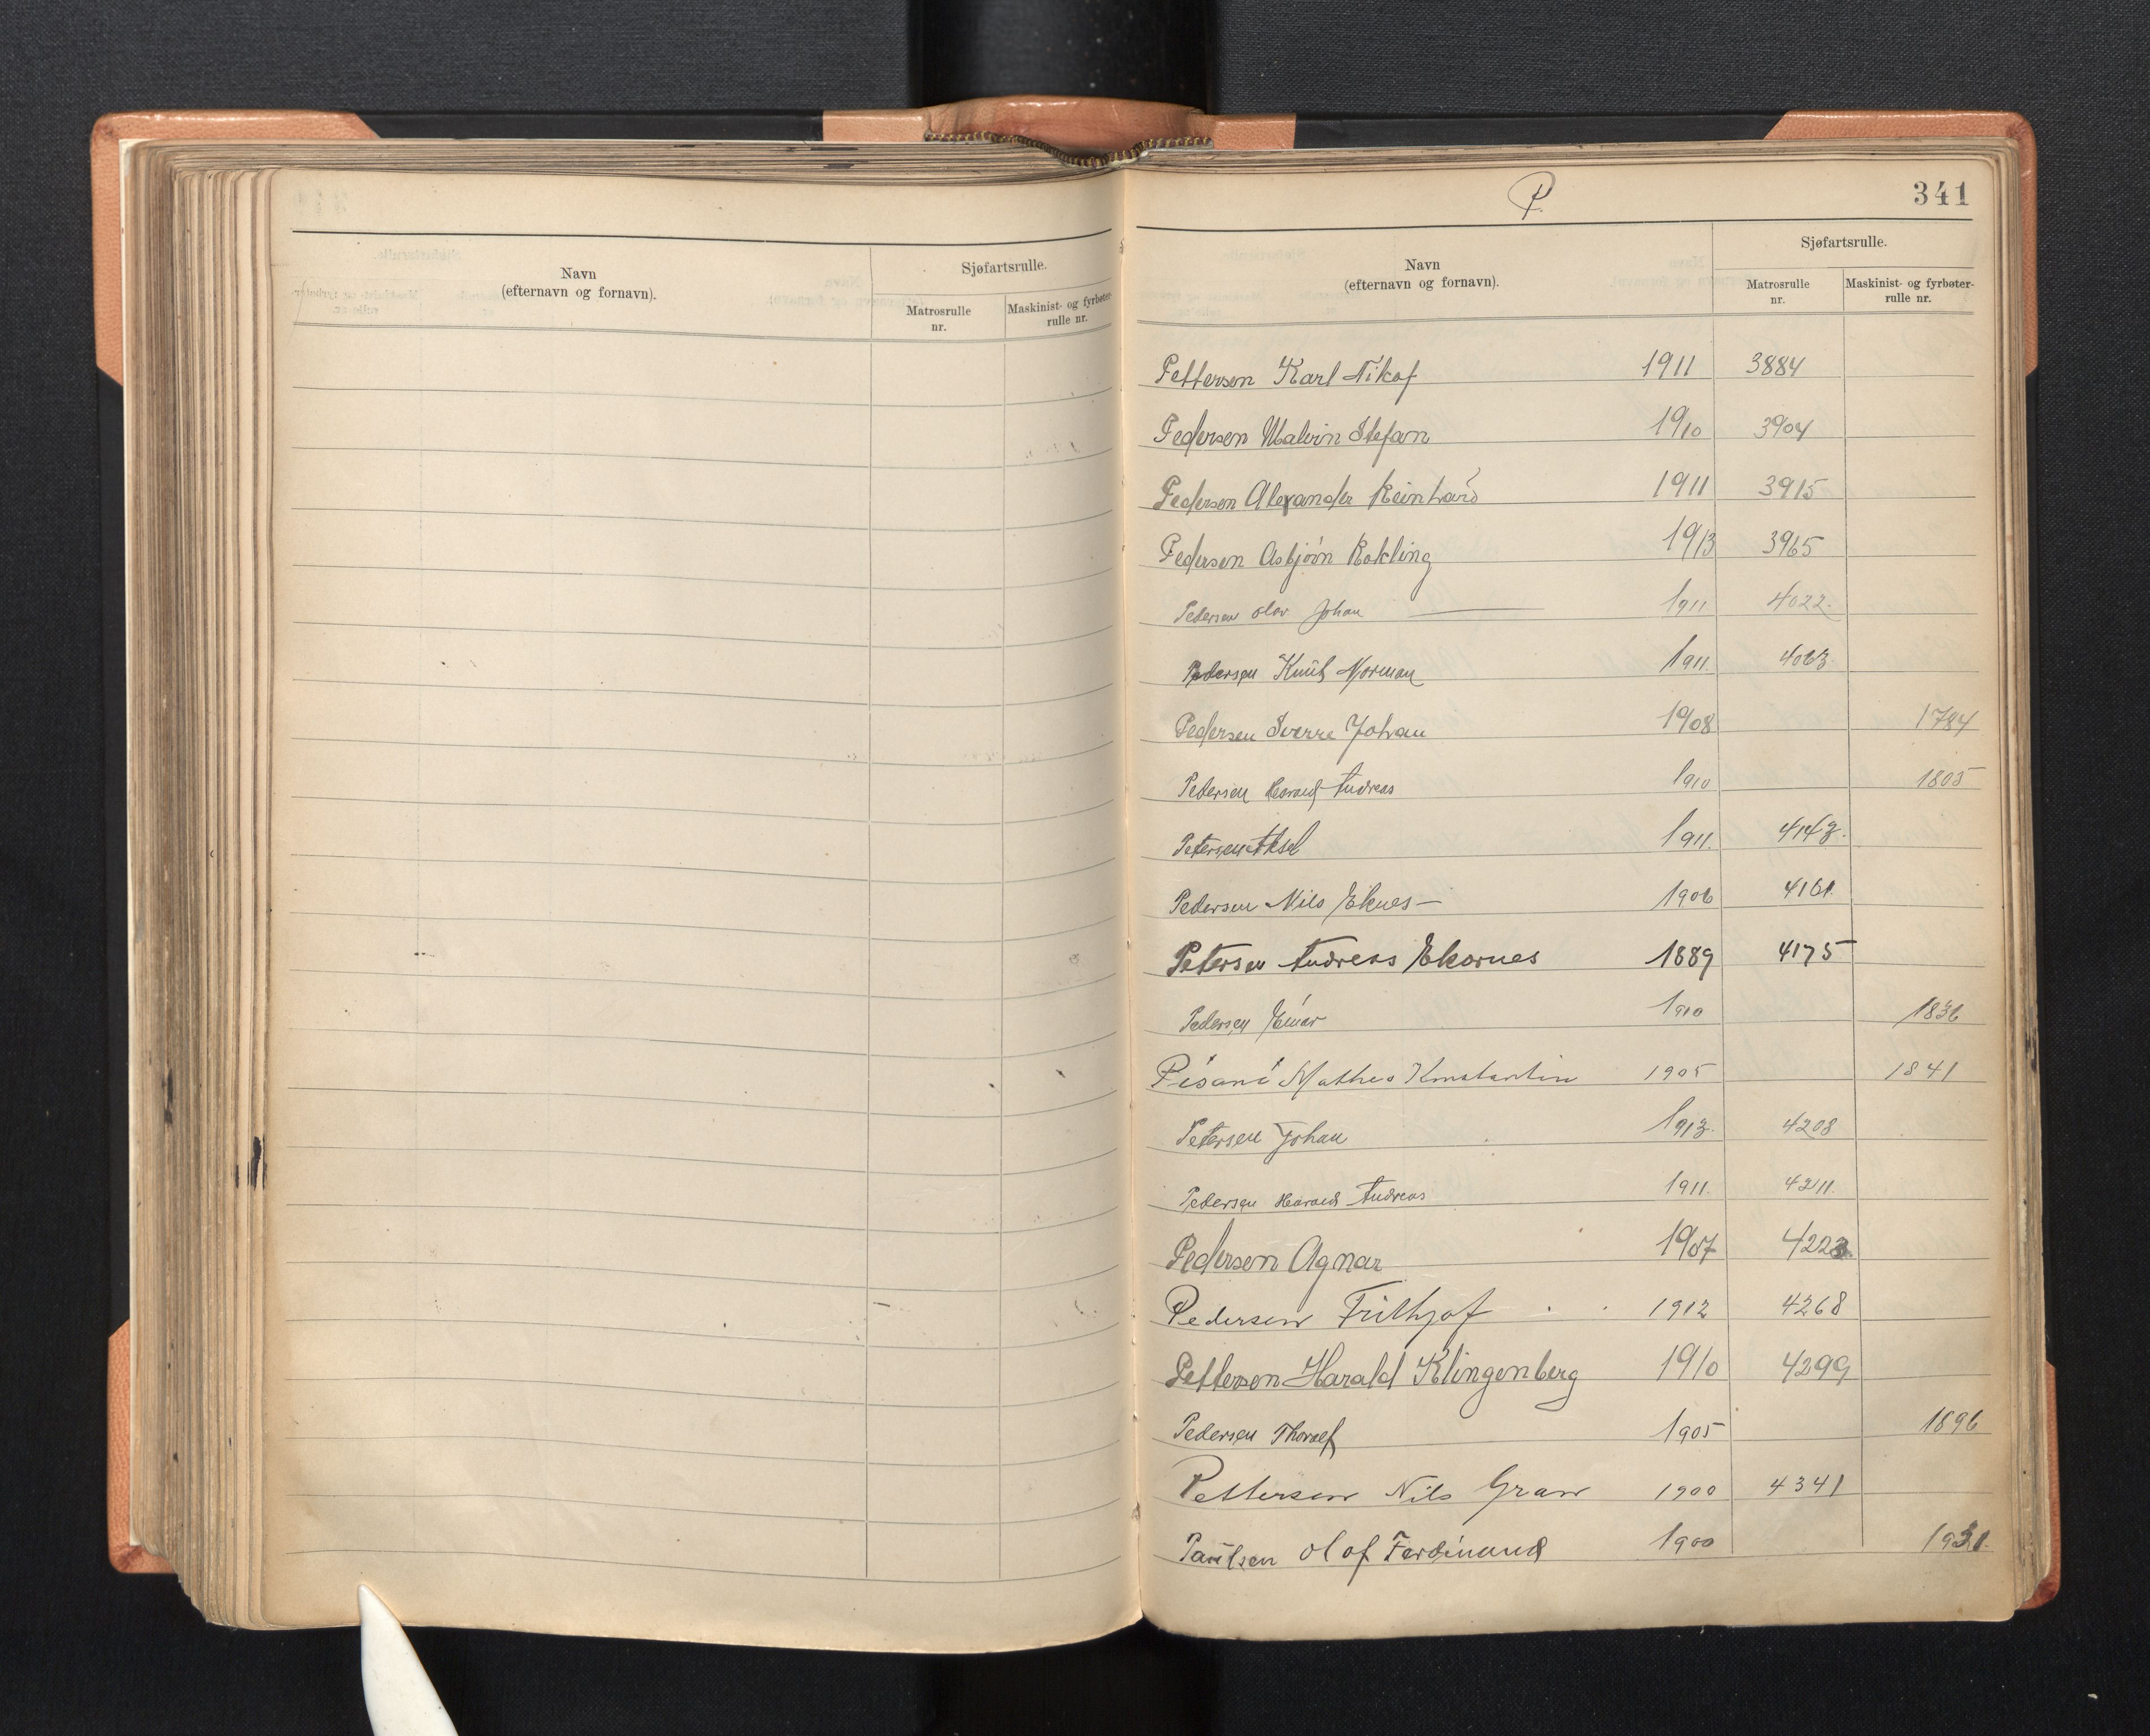 Navn
(efternavn og fornavn).
Sjøfartsrulle.
Matrosrulle
nr.
Maskinist- og fyrbøter-
rulle nr.
P.
341
Navn
(efternavn og fornavn).
Sjøfartsrulle.
Matrosrulle
nr.
Maskinist- og fyrbøter-
rulle nr.
Pettersen Karl Nikof 1911 3884
Pedersen Malvin Stefan 1910 3904
Pedersen Alexander Reinhard 1911 3915
Pedersen Asbjørn Rokling 1913 3965
Pedersen Olav Johan 1911 4022.
Pedersen Knut Norman 1911. 4063.
Pedersen Sverre Johan 1908 1784
Pedersen Harald Andreas 1910 1805
Petersen Aksel 1911. 4143.
Pedersen Nils Eknes — 1906 4161.
Petersen Andreas Ekornes 1889 4175
Pedersen Einar 1910 1836
Pisani Matheo Konstantin 1905 1841
Petersen Johan 1913. 4208
Pedersen Harald Andreas 1911. 4211.
Pedersen Agnar 1907 4223.
Pedersen Frithjof 1912 4268
Pettersen Harald Klingenberg 1910 4299
Pedersen Thoralf 1905 1896
Pettersen Nils Gran 1900 4341
Paulsen Olaf Ferdinand 1900 1931.